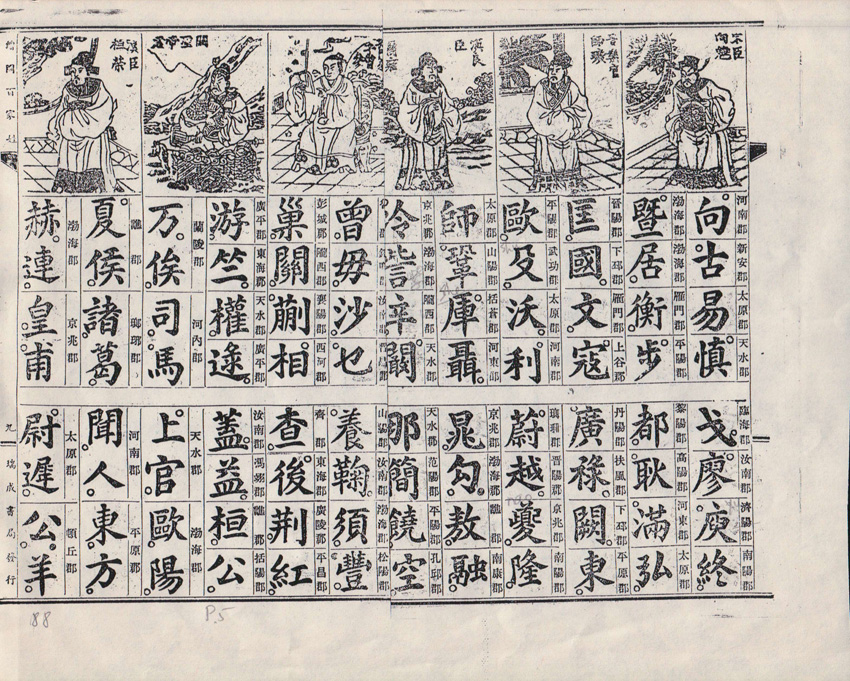 宋臣
晉樂官
師曠
漢良
臣
漢臣
桓榮
河南郡 新安郡 太原郡 天水郡
向古易慎
渤海郡 渤海郡 雁門郡 平陽郡
暨居衡步
晉陽郡 下邳郡 雁門郡 上谷郡
匡國文寇
平陽郡 武功郡 太原郡 河南郡
歐殳沃利
太原郡 山陽郡 括蒼郡 河東郡
師鞏厙聶
京兆郡 渤海郡 隴西郡 天水郡
冷訾辛闞
曾毋沙乜
彭城郡 隴西郡 襄陽郡 西河郡
巢關蒯相
廣平郡 東海郡 天水郡 廣平郡
游竺權逯
蘭陵郡 河內郡
万俟司馬
譙郡 瑯琊郡
夏侯諸葛
渤海郡 京兆郡
赫連皇甫
臨海郡 汝南郡 濟陽郡 南陽郡
戈廖庾終
黎陽郡 高陽郡 河東郡 太原郡
都耿滿弘
丹陽郡 扶風郡 下邳郡 平原郡
廣祿闕東
瑯琊郡 晉陽郡 京兆郡 南陽郡
蔚越夔隆
京兆郡 渤海郡 譙郡 南康郡
晁勾敖融
天水郡 范陽郡 平陽郡 孔邱郡
那簡饒空
山陽郡 汝南郡 渤海郡 松陽郡
養鞠須豐
齊郡 東海郡 廣陵郡 平昌郡
查後荊紅
汝南郡 馮翊郡 譙郡 括陽郡
蓋益桓公
天水郡 渤海郡
上官歐陽
河南郡 平原郡
聞人東方
太原郡 頓丘郡
尉遲公羊
九 瑞成書局發行
88
P.5